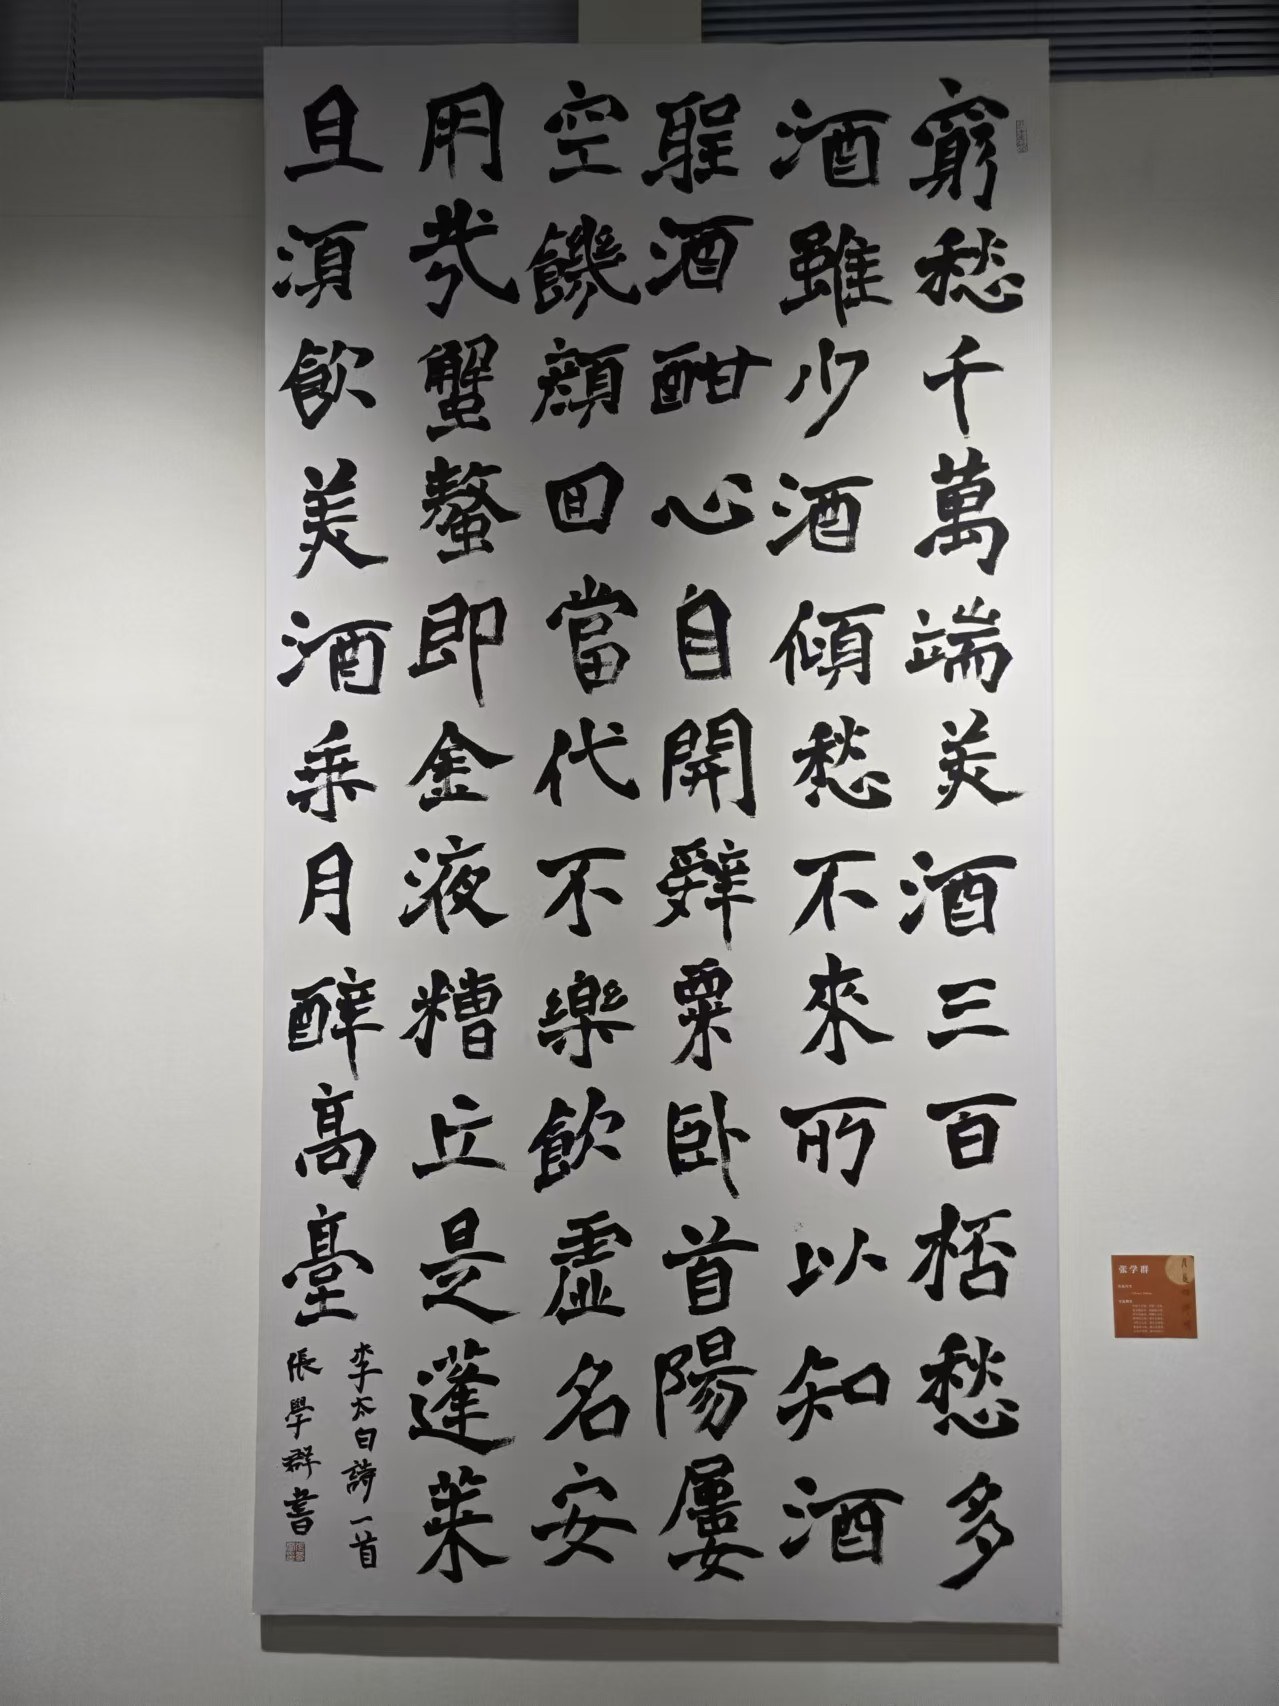 窮愁千萬端美酒三百桮愁多
酒雖少酒傾愁不來所以知酒
聖酒酣心自開辭粟卧首陽屢
空饑顏回當代不樂飲虛名安
用哉蟹螯即金液糟丘是蓬萊
且須飲美酒乘月醉高臺
李太白詩一首
張學群書
张学群